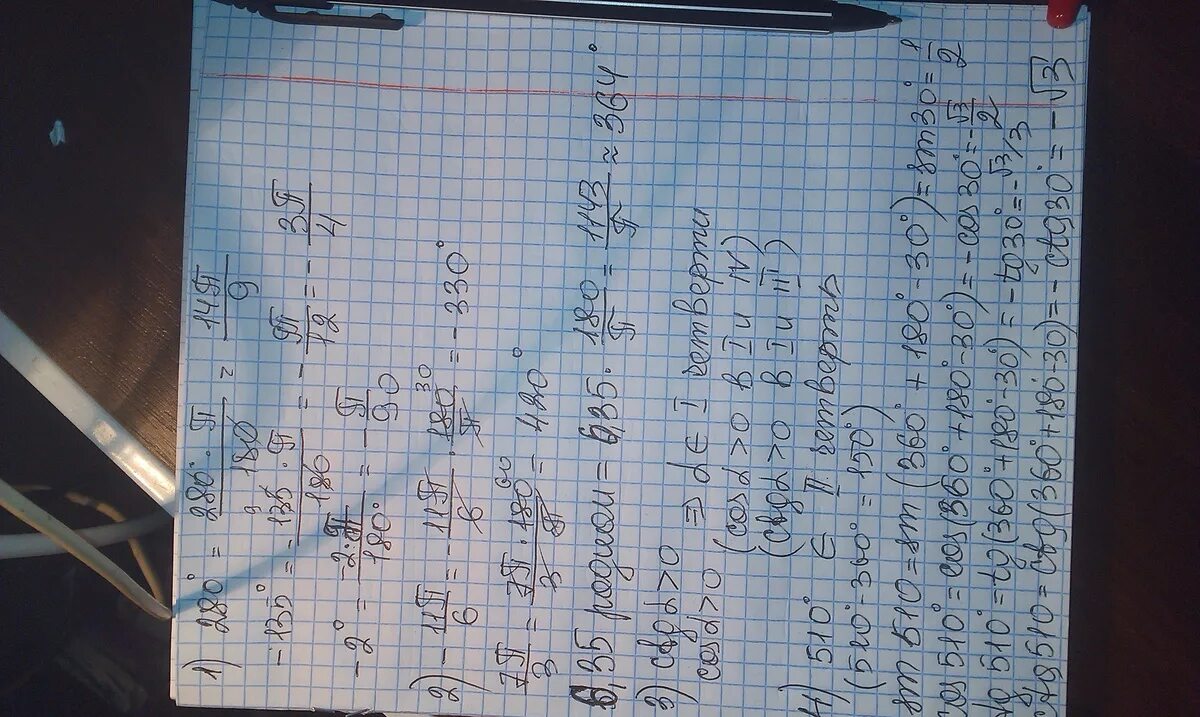 1) 280° = 280°·π/180 = 14π/9
-135° = -135·π/180 = -π/12 = -3π/4
-2° = -2·π/180° = -π/90
2) -11π/6 = -11π/6 · 180/π 30 = -330°
7π/3 = 7π·180/3π 60 = 420°
6,35 радиан = 6,35·180/π = 1143/π ≈ 364°
3) ctgα>0
cosα>0 ⇒ α∈ I четверти
(cosα>0 в I и IV)
(ctgα>0 в I и III)
4) 510° ∈ II четверти
(510°-360°=150°)
sin510=sin(360°+180°-30°)=sin30°=1/2
cos510°=cos(360°+180°-30°)=-cos30°=-√3/2
tg510°=tg(360°+180°-30°)=-tg30°=-√3/3
ctg510=ctg(360°+180-30)=-ctg30°=-√3